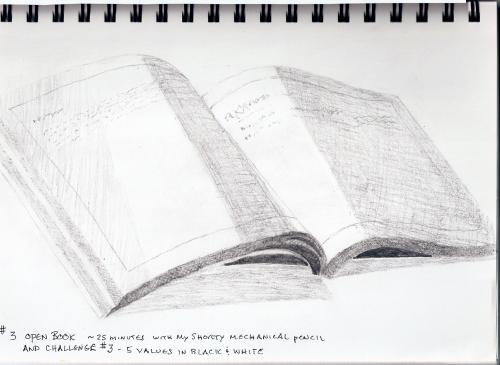 # 3 OPEN BOOK ~25 MINUTES WITH MY SHORTY MECHANICAL PENCIL
AND CHALLENGE #3 - 5 VALUES IN BLACK & WHITE